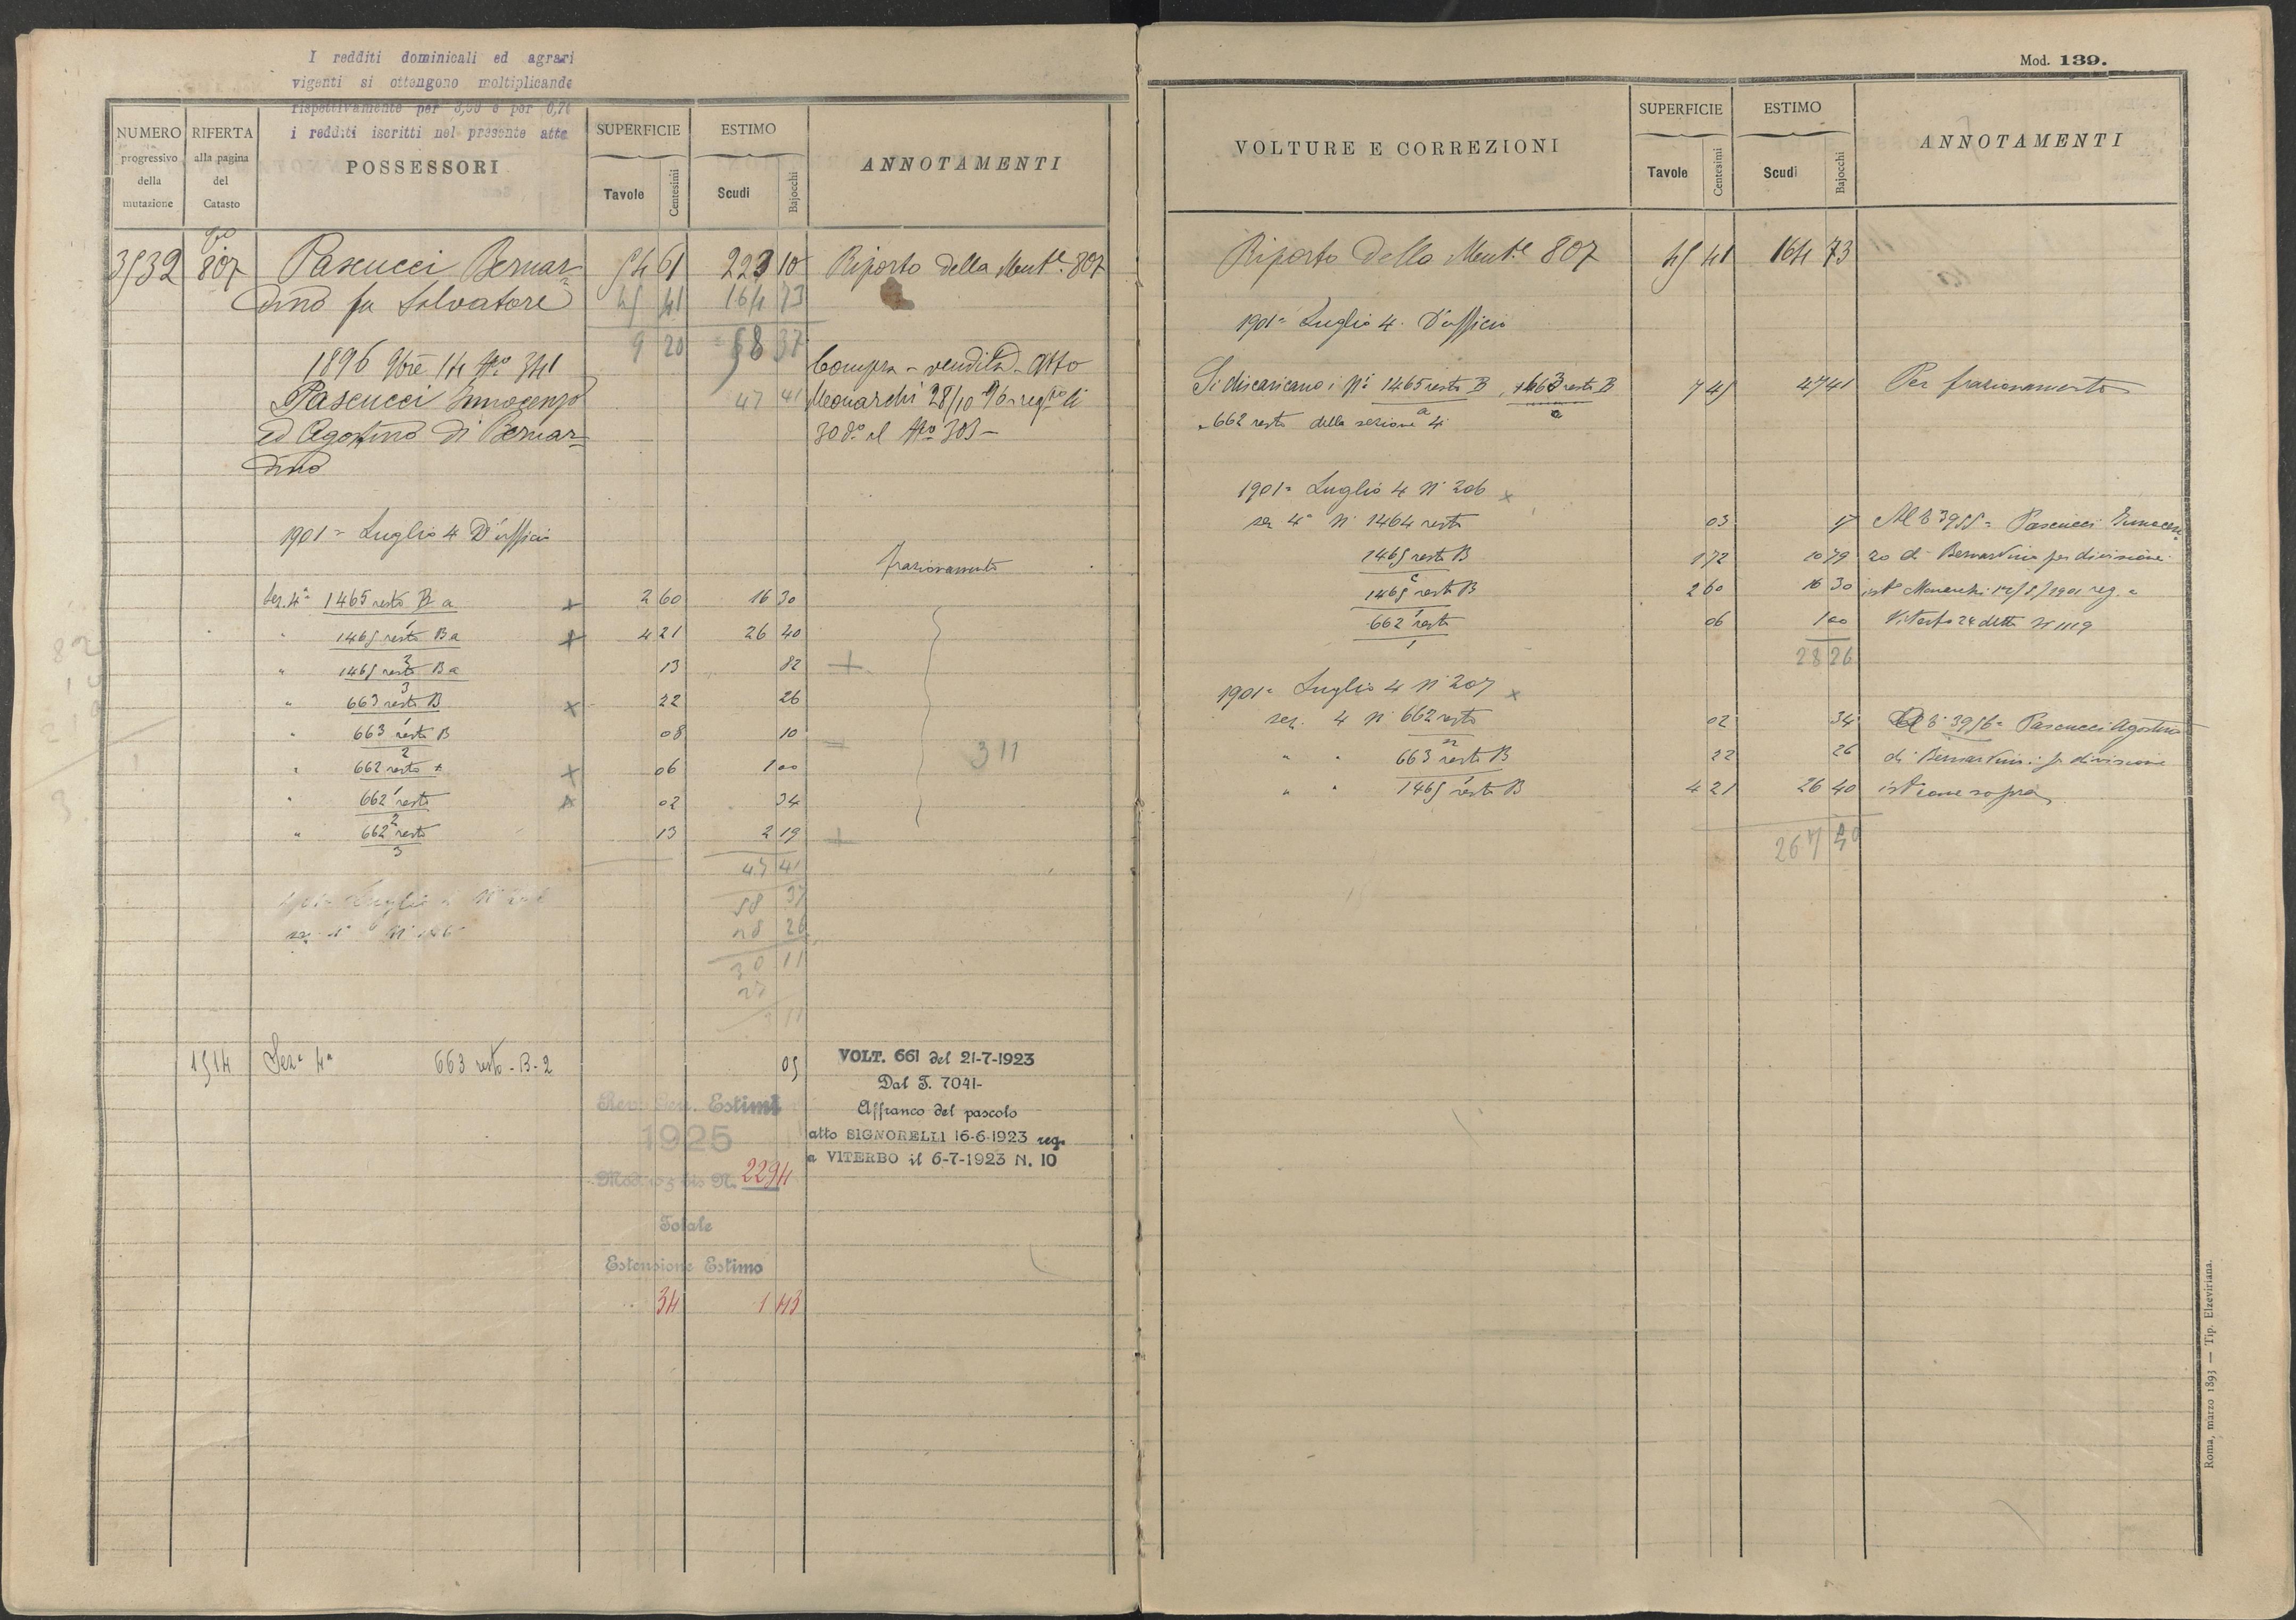 I redditi dominicali ed agrari
vigenti si ottengono moltiplicande
rispettivamente per 3,60 e per 0,76
i redditi iscritti nel presente atto
NUMERO progressivo della mutazione
RIFERTA alla pagina del Catasto
POSSESSORI
SUPERFICIE
Tavole Centesimi
ESTIMO
Scudi Bajocchi
ANNOTAMENTI
3532 807 Pascucci Bernar= 54 61 223 10 Riporto della Ment.e 807
dino fu Salvatore 45 41 164 73
9 20 58 37
1896 9bre 14 No 341 Compra-vendita-atto
Pascucci Innocenzo 47 41 Monarchi 28/10 96 regto li
ed Agostino di Bernar= 30 do al No 303 -
dino
1901= Luglio 4 D'ufficio
frazionamento
Sez. 4a 1465 resto B a 1 2 60 16 30
" 1465 resto B a 2 4 21 26 40
" 1465 resto B a 3 13 82
" 663 resto B 1 22 26
" 663 resto B 2 08 10
311
" 662 resto 1 06 1 00
" 662 resto 2 02 34
" 662 resto 3 13 2 19
47 41
58 37
28 26
30 11
27
11
1514 Seze 4a 663 resto-B-2 05
VOLT. 661 del 21-7-1923
Dal T. 7041-
Affranco del pascolo
atto SIGNORELLI 16-6-1923 reg.
a VITERBO il 6-7-1923 N. 10
Rev. Gen. Estimi
1925
Mod. 103 bis N. 2294
Totale
Estensione Estimo
34 1 43
Mod. 139.
VOLTURE E CORREZIONI
SUPERFICIE
Tavole Centesimi
ESTIMO
Scudi Bajocchi
ANNOTAMENTI
Riporto della Ment.e 807 45 41 164 73
1901= Luglio 4. D'ufficio
Si discaricano i Ni 1465 resto B a, 663 resto B a 7 45 47 41 Per frazionamento
662 resto della sezione 4
1901= Luglio 4 N 206
sez 4a N 1464 resto 03 17 All 3955= Pascucci Innocen=
1465 resto B c 1 72 10 79 zo di Bernardino per divisione
1465 resto B 1 2 60 16 30 ist Monarchi 12/5/1901 reg. a
662 resto 1 06 1 00 Viterbo 24 detto N 1119
28 26
1901= Luglio 4 N 207
sez. 4 N 662 resto 2 02 34 3956= Pascucci Agostino
" " 663 resto B 1 22 26 di Bernardino per divisione
" " 1465 resto B 4 21 26 40 ist come sopra
Roma, marzo 1893 — Tip. Elzeviriana.